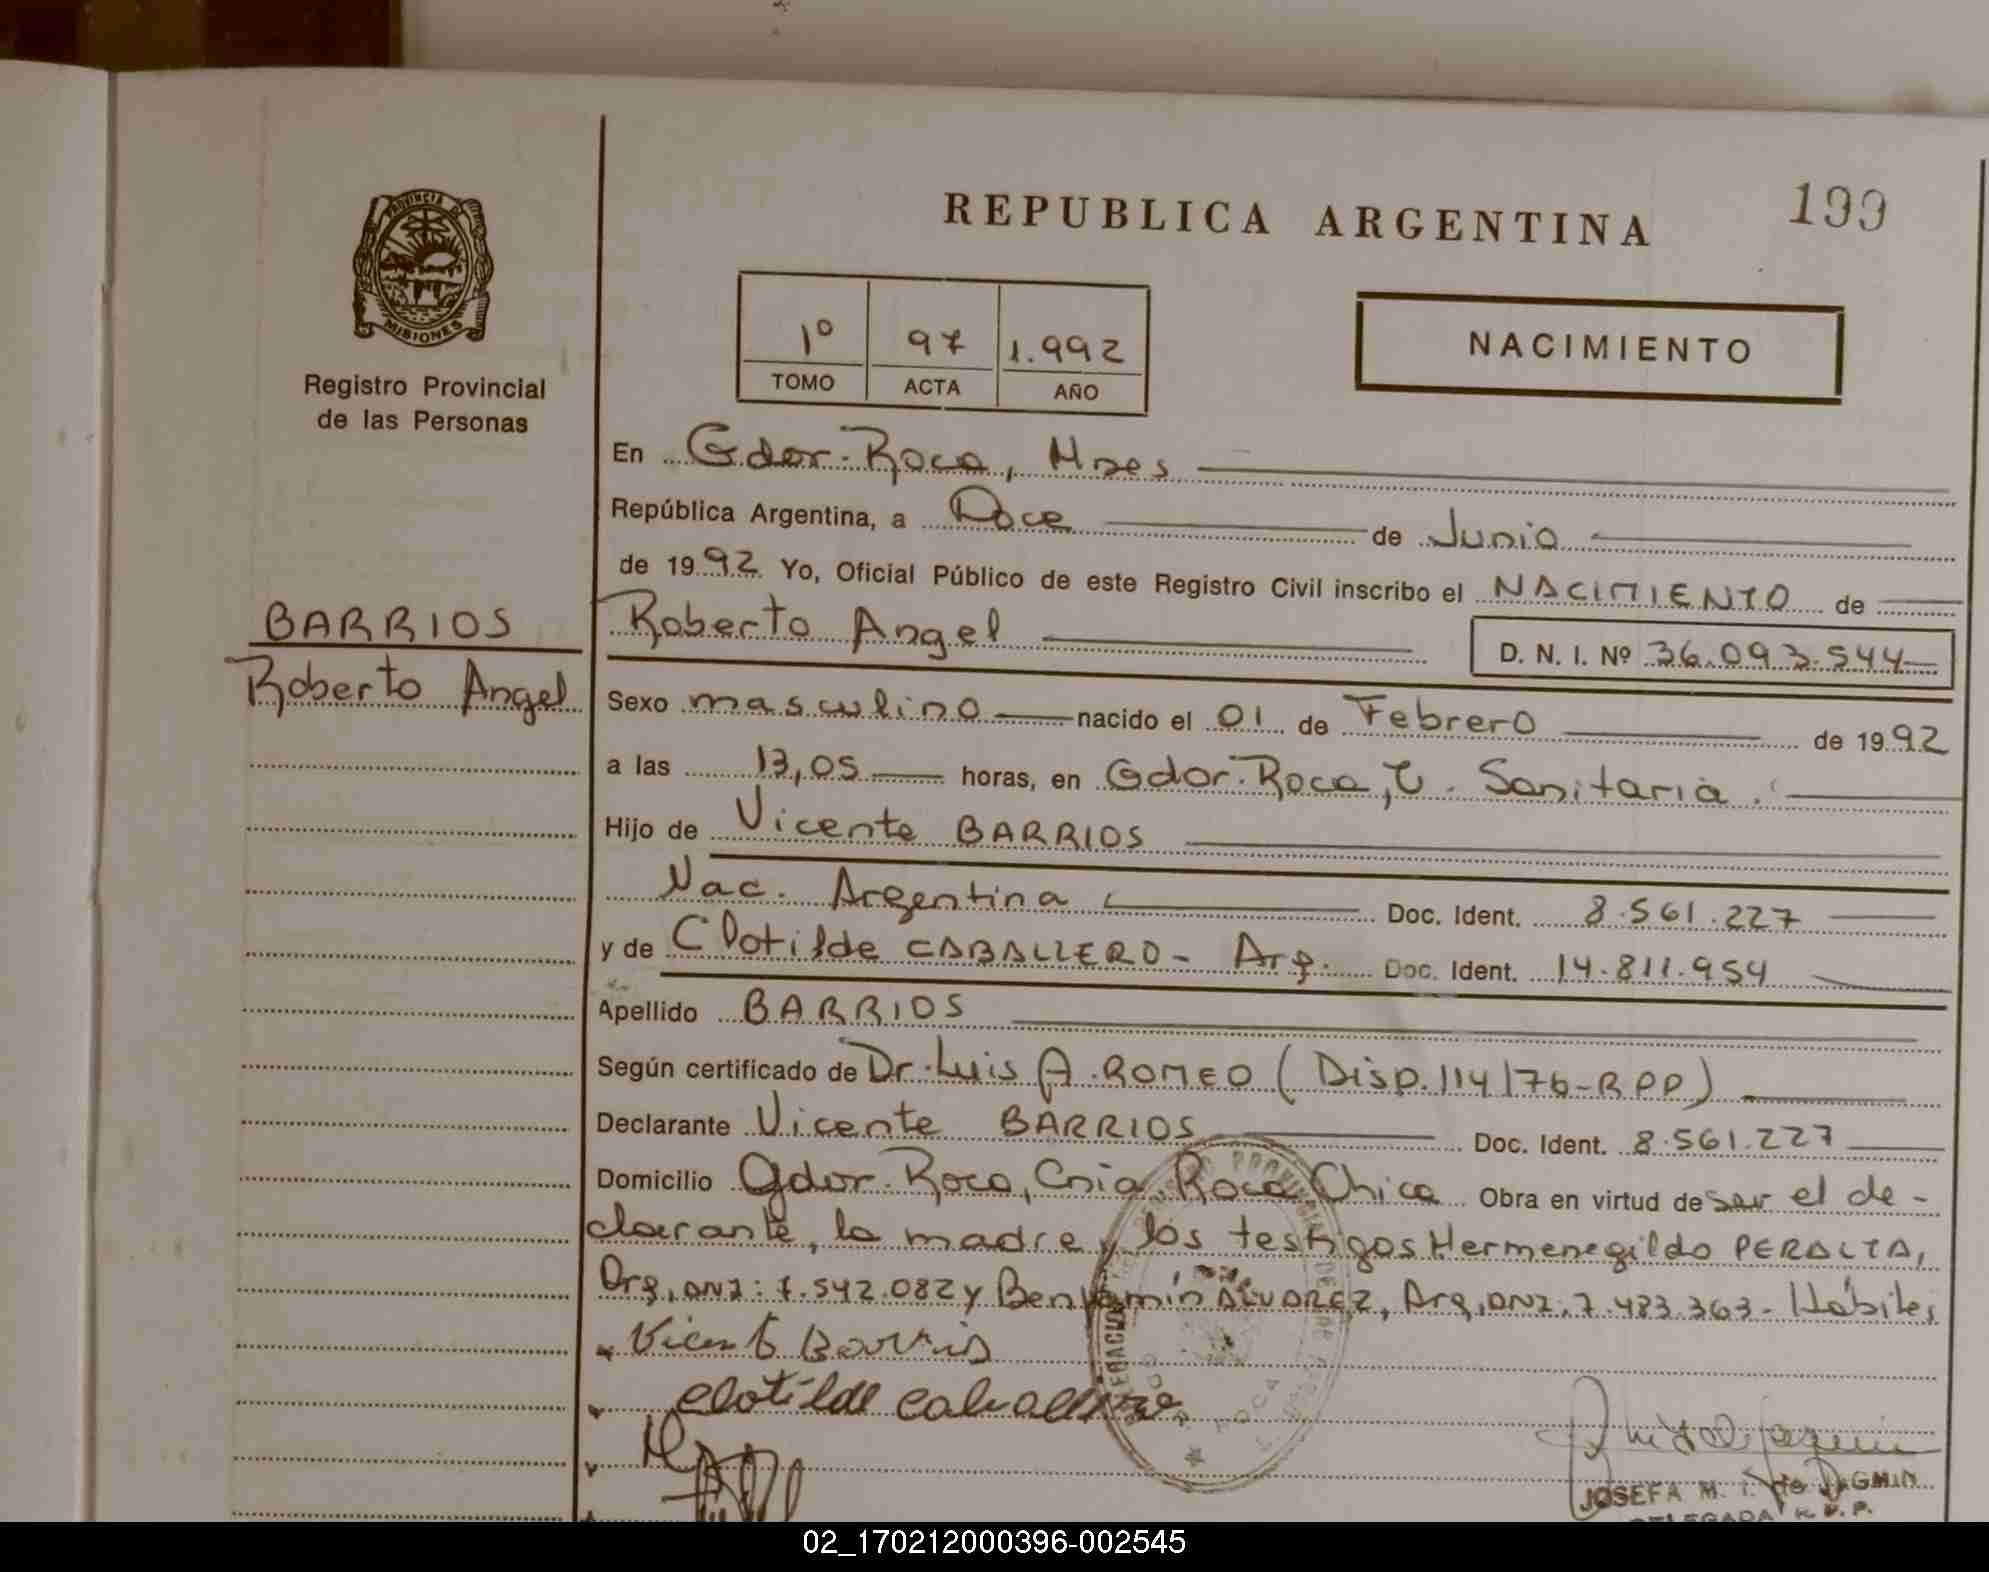 199
REPUBLICA ARGENTINA
PROVINCIA DE
MISIONES
Registro Provincial
de las Personas
1º 97 1.992
TOMO ACTA AÑO
NACIMIENTO
En Gdor. Roca, Mnes
República Argentina, a Doce de Junio
de 1992 Yo, Oficial Público de este Registro Civil inscribo el NACIMIENTO de
BARRIOS
Roberto Angel
Roberto Angel D. N. I. Nº 36.093.544
Sexo masculino nacido el 01 de Febrero de 1992
a las 13,05 horas, en Gdor. Roca, U. Sanitaria.
Hijo de Vicente BARRIOS
Nac. Argentina Doc. Ident. 8.561.227
y de Clotilde CABALLERO - Arg. Doc. Ident. 14.811.954
Apellido BARRIOS
Según certificado de Dr. Luis A. ROMEO (Disp. 114/76-RPP)
Declarante Vicente BARRIOS Doc. Ident. 8.561.227
Domicilio Gdor. Roca, Cnia. Roca Chica Obra en virtud de ser el de-
clarante, la madre y los testigos Hermenegildo PERALTA,
Arg, DNI: 7.542.082 y Benjamín ALVAREZ, Arg, DNI. 7.483.363 - Hábiles,
Vicente Barrios
Clotilde Caballero
JOSEFA M. I. de
DELEGADA R. P. P.
02_170212000396-002545